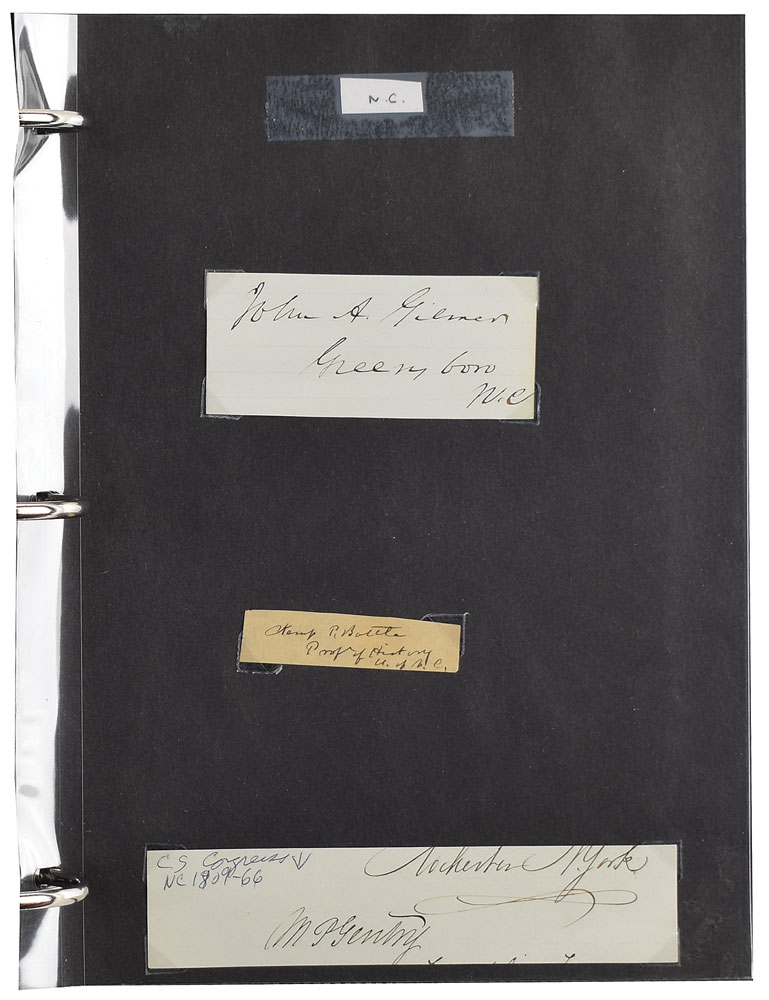 N.C.
John A. Gilmer
Greensboro
N.C
Kemp P. Battle
Prof. of History
U. of N. C.
CS Congress
NC 1809-66
Rochester N York
M P Gentry